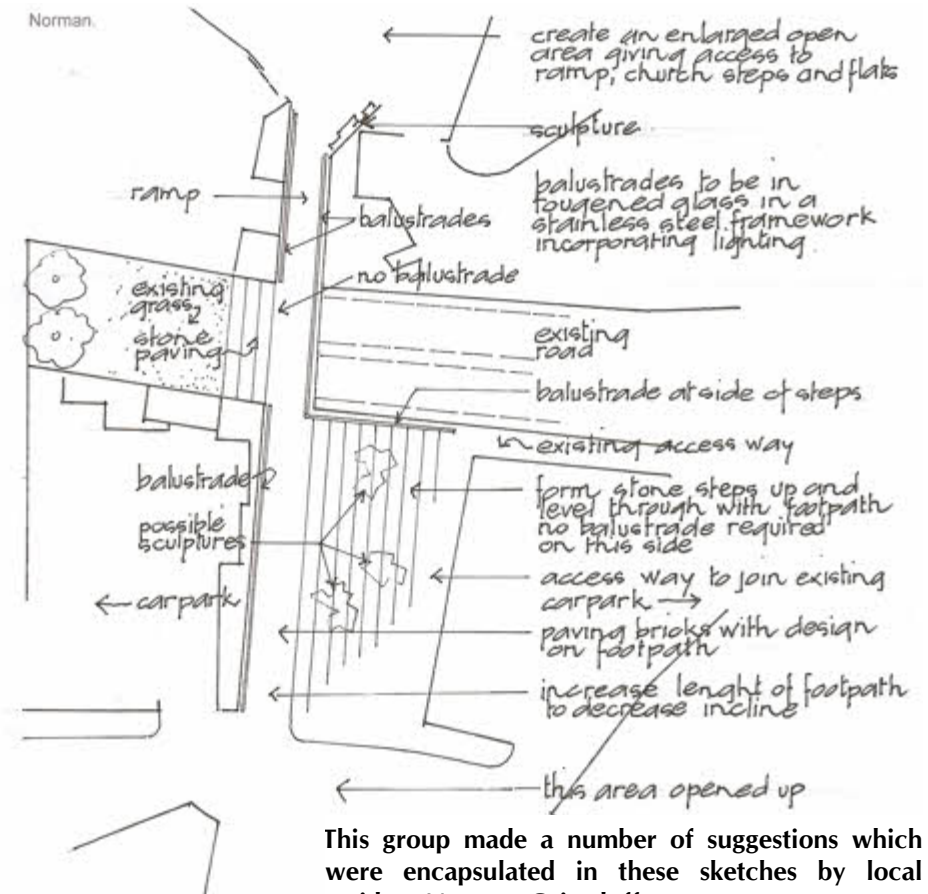 Norman.
create an enlarged open
area giving access to
ramp, church steps and flats
sculpture
ramp
balustrades to be in
tougened glass in a
stainless steel framework
incorporating lighting
balustrades
no balustrade
existing
grass
stone
paving
existing
road
balustrade at side of steps
existing access way
balustrade
form stone steps up and
level through with footpath
no balustrade required
on this side
possible
sculptures
access way to join existing
carpark
carpark
paving bricks with design
on footpath
increase lenght of footpath
to decrease incline
this area opened up
This group made a number of suggestions which
were encapsulated in these sketches by local